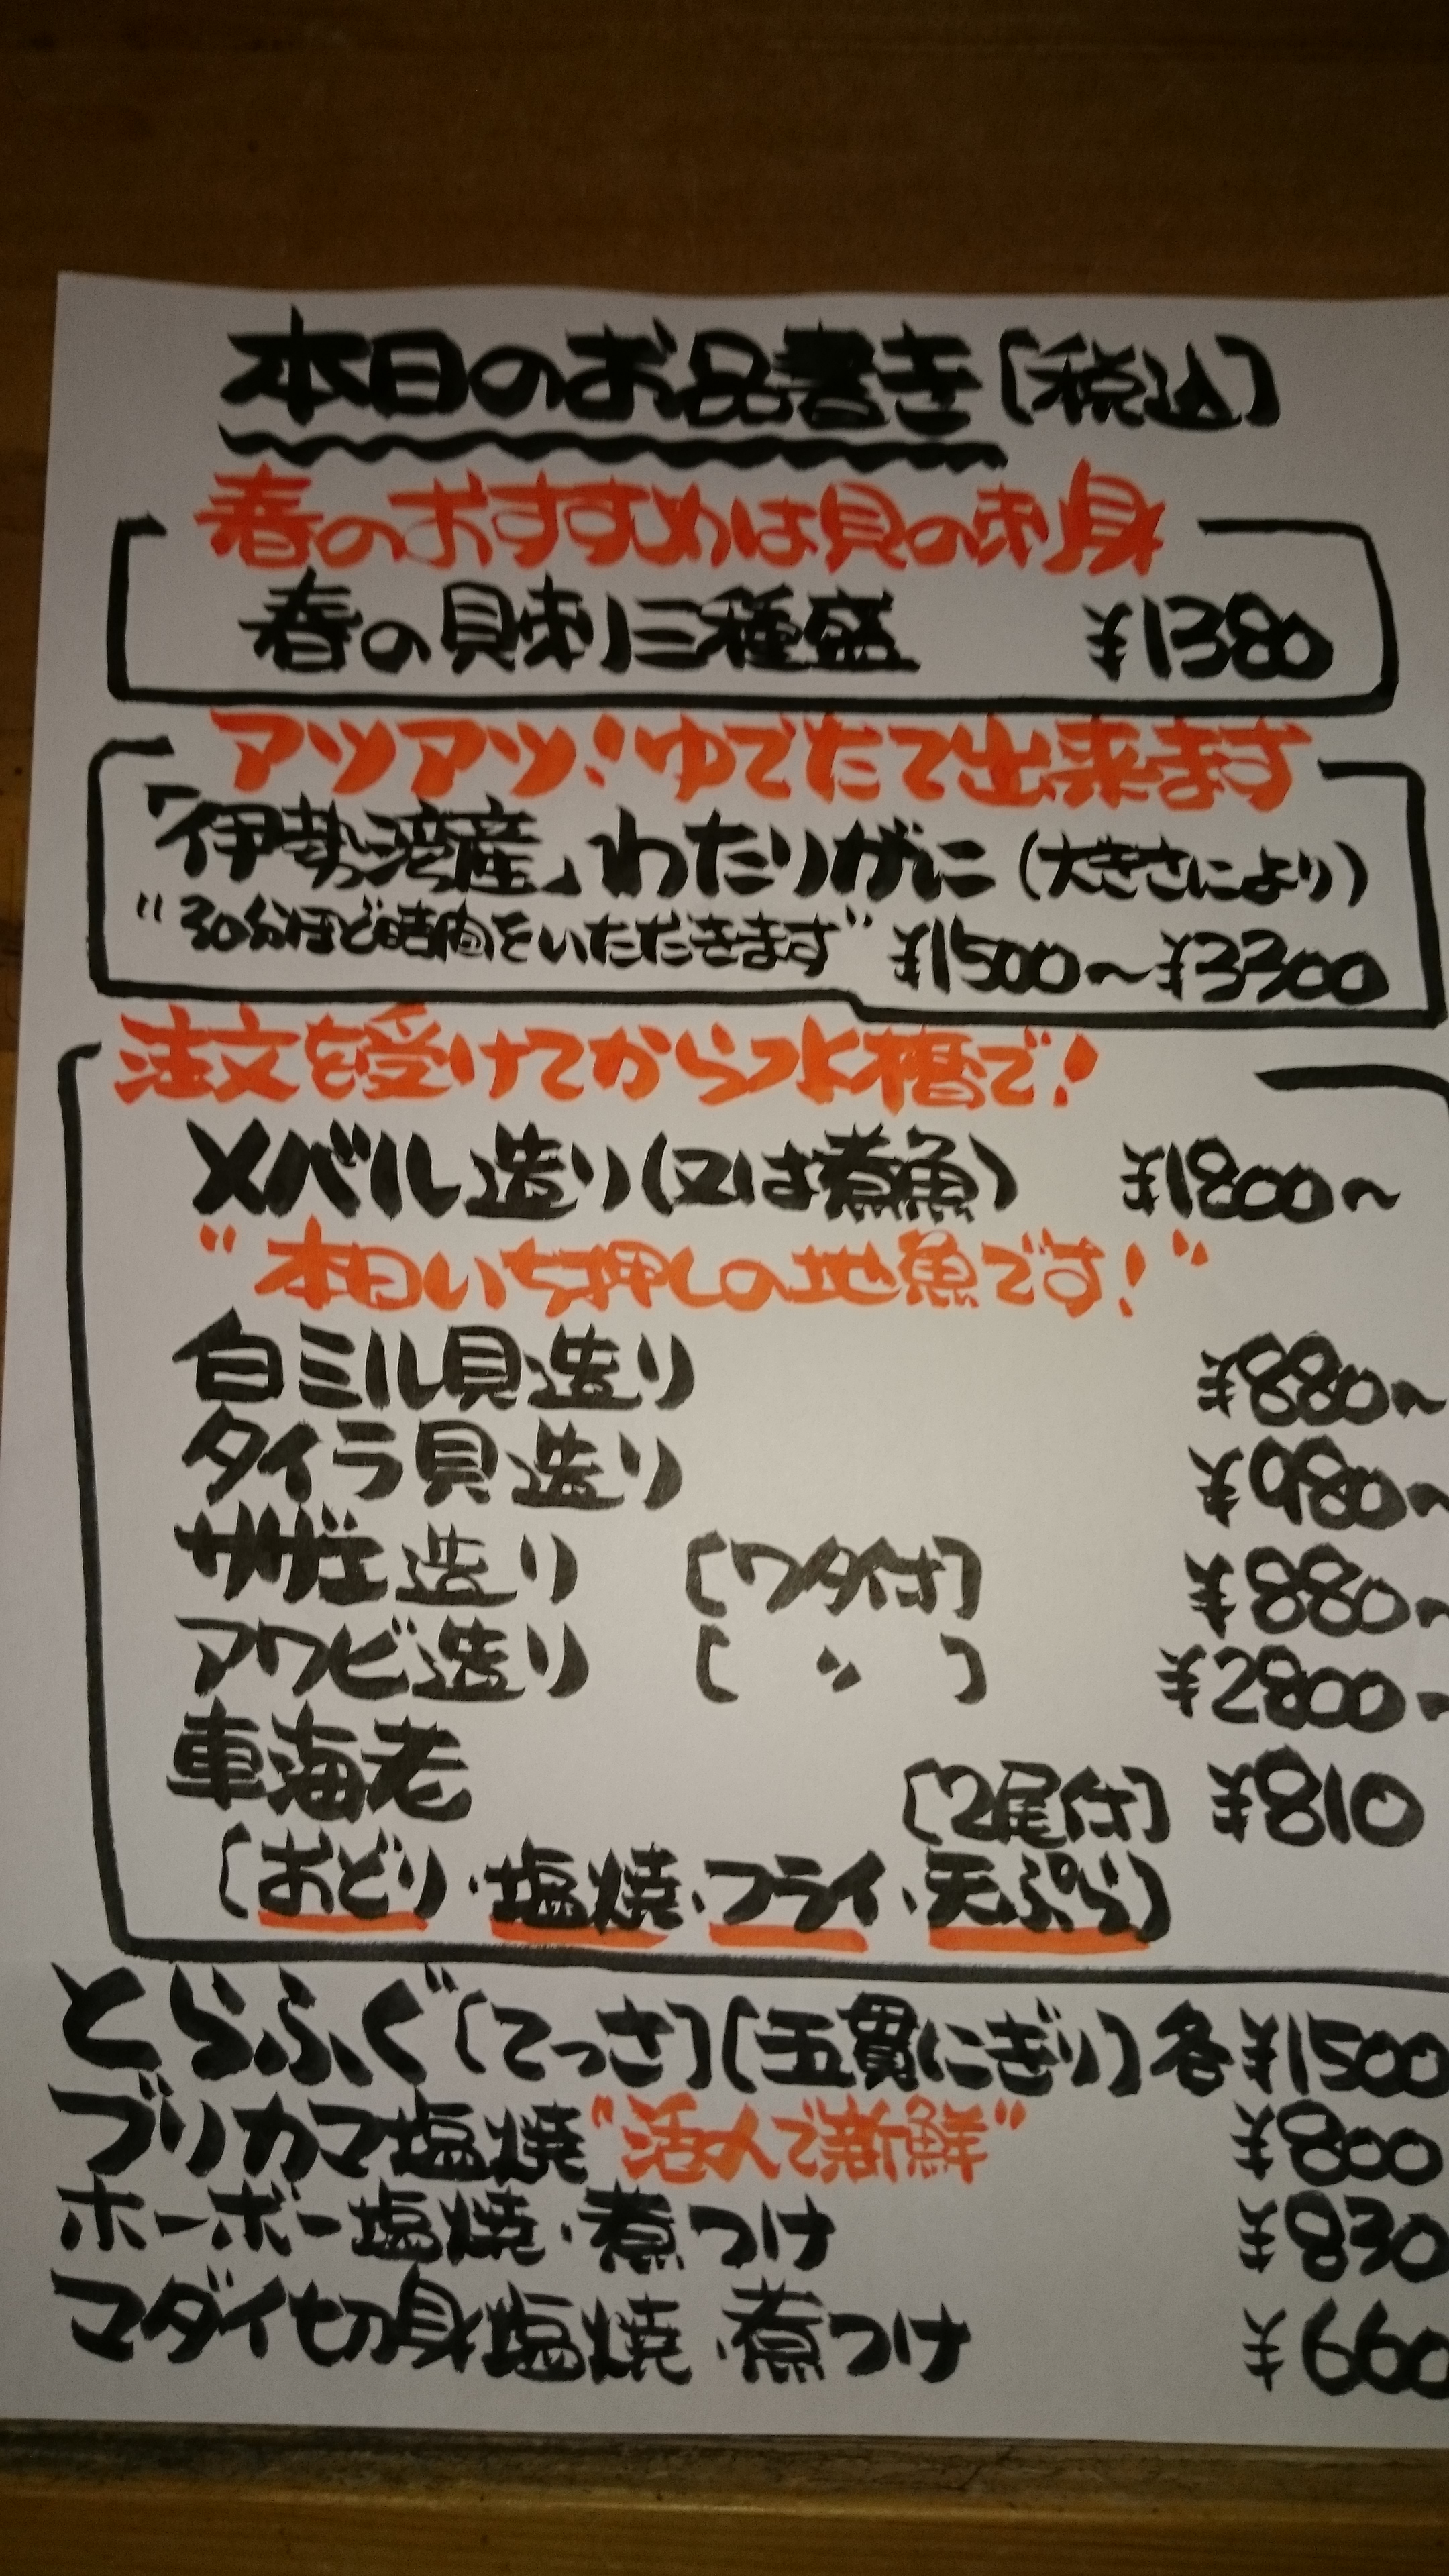 本日のお品書き〔税込〕
春のおすすめは貝の刺身
春の貝刺三種盛 ¥1380
アツアツ!ゆでたて出来ます
「伊勢湾産」わたりがに(大きさにより)
"30分ほど時間をいただきます" ¥1500〜¥3300
注文を受けてから水槽で!
メバル造り(又は煮魚) ¥1800〜
"本日いち押しの地魚です!"
白ミル貝造り ¥880〜
タイラ貝造り ¥980〜
サザエ造り 〔ワタ付〕 ¥880〜
アワビ造り 〔 〃 〕 ¥2800〜
車海老 〔2尾付〕 ¥810
〔おどり・塩焼・フライ・天ぷら〕
とらふぐ〔てっさ〕〔五貫にぎり〕各¥1500
ブリカマ塩焼"活〆で新鮮" ¥800
ホーボー塩焼・煮つけ ¥830
マダイ切身塩焼・煮つけ ¥990